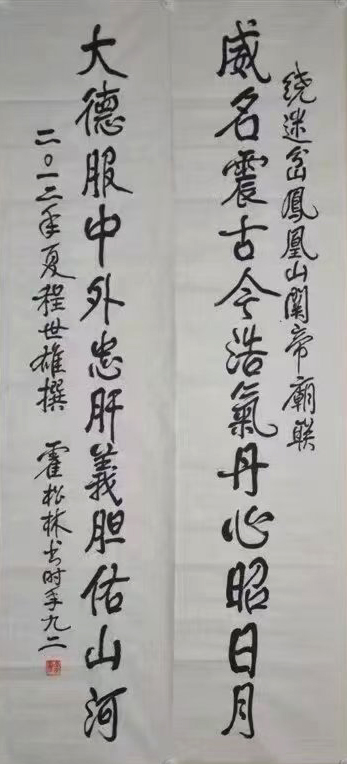 绕迷岔鳳凰山関帝廟联
威名震古今浩氣丹心昭日月
大德服中外忠肝義胆佑山河
二〇一二年夏程世雄撰 霍松林书时年九二